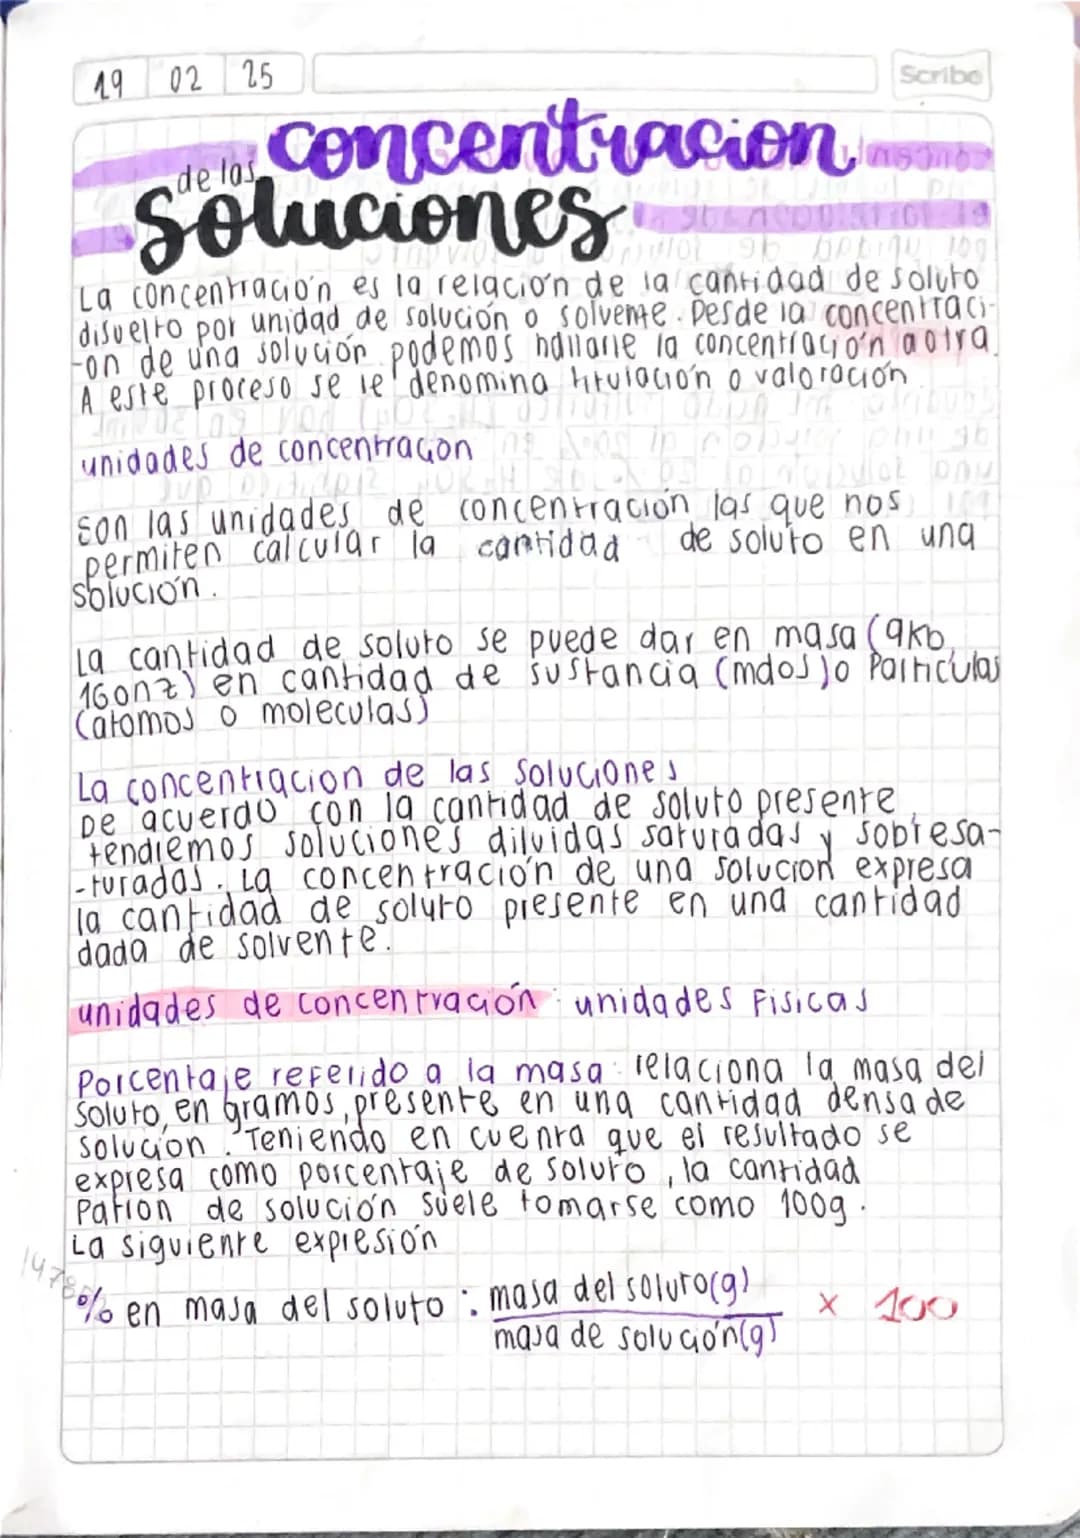 19 02 25
Scribe
concentracion
de las
Soluciones
La concentración es la relación de la cantidad de soluto
disuelto por unidad de solución o solvente. Desde la concentraci-
-on de una solución podemos hallarle la concentración a otra.
A este proceso se le denomina titulación o valoración
unidades de concentracion
son las unidades de concentración las que nos
permiten calcular la cantidad de soluto en una
solución.
La cantidad de soluto se puede dar en masa (
en cantidad de sustancia (mdos) o Particulas
(atomos o moleculas)
La concentracion de las soluciones
De acuerdo con la cantidad de soluto presente
tendremos soluciones diluidas saturadas y sobresa-
-turadas. La concentración de una solucion expresa
la cantidad de soluto presente en una cantidad
dada de solvente.
unidades de concentración: unidades Fisicas
Porcentaje referido a la masa: relaciona la masa del
soluto, en gramos, presente en una cantidad densa de
solucion. Teniendo en cuenta que el resultado se
expresa como porcentaje de soluto, la cantidad
Patron de solución suele tomarse como 100g.
La siguiente expresión
% en masa del soluto : masa del soluto(g)
masa de solución(g)
x 100